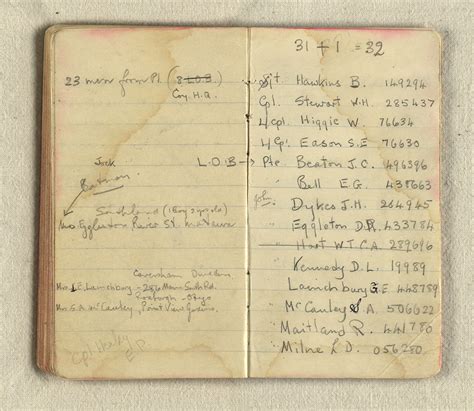 23 men from Pl. (8 L.O.B.)
Coy. H.Q.
Jock
Batman
(1 Boy 3 yrs old)
Mrs Eggleton St.
Caversham Dunedin
Mrs E. Lamchbury - 286 Main South Rd.
Mrs G. A. McCauley, Point View
Cpl
31 + 1 = 32
Sjt Hawkins B. 149294
Cpl. Stewart W.H. 285437
L/Cpl Higgie W. 76634
L/Cpl. Eason S.E 76630
L.O.B → Pte. Beaton J.C. 496396
Bell E.G. 438663
Dykes J.H. 264945
Eggleton D.R. 433784
Hart W.T.C.A. 289696
Kennedy D.L. 19989
Lamchbury G.E. 448759
McCauley A. 506622
Maitland R. 441780
Milne L D. 056280